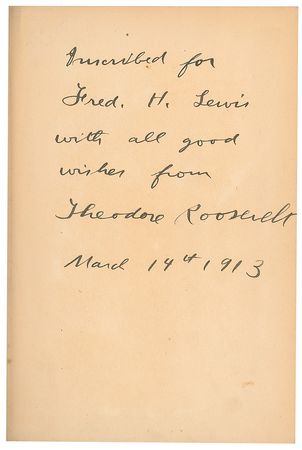 Inscribed for
Fred. H. Lewis
with all good
wishes from
Theodore Roosevelt
March 14th 1913